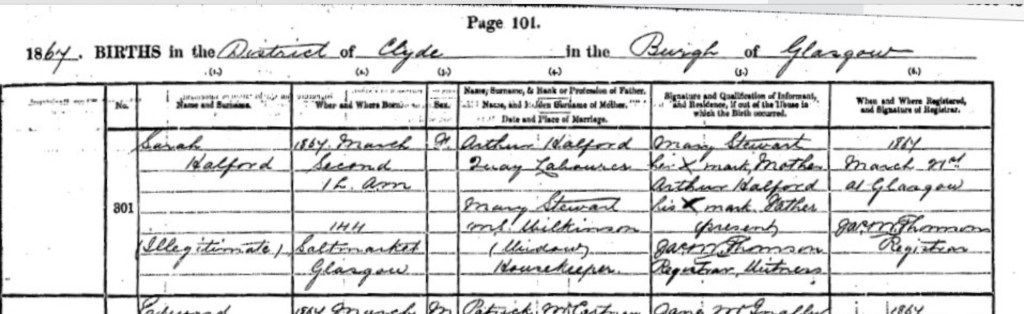 Page 101.
1867. BIRTHS in the District of Clyde in the Burgh of Glasgow
(1.) (2.) (3.) (4.) (5.) (6.)
No. Name and Surname. When and Where Born. Sex. Name, Surname, & Rank or Profession of Father. Name, and Maiden Surname of Mother. Date and Place of Marriage. Signature and Qualification of Informant, and Residence, if out of the House in which the Birth occurred. When and Where Registered, and Signature of Registrar.
Sarah 1867 March F. Arthur Halford Mary Stewart 1867
Halford Second Quay Labourer her X mark, Mother March
1h. AM Arthur Halford at Glasgow
301 Mary Stewart his X mark. Father
144 m.s. Wilkinson (present) Jas. M. Thomson
(Illegitimate) Saltmarket (Widow) Jas. M. Thomson Registrar
Glasgow Housekeeper. Registrar, Witness
Edward 1867 March M Patrick McCartney Jane 1867